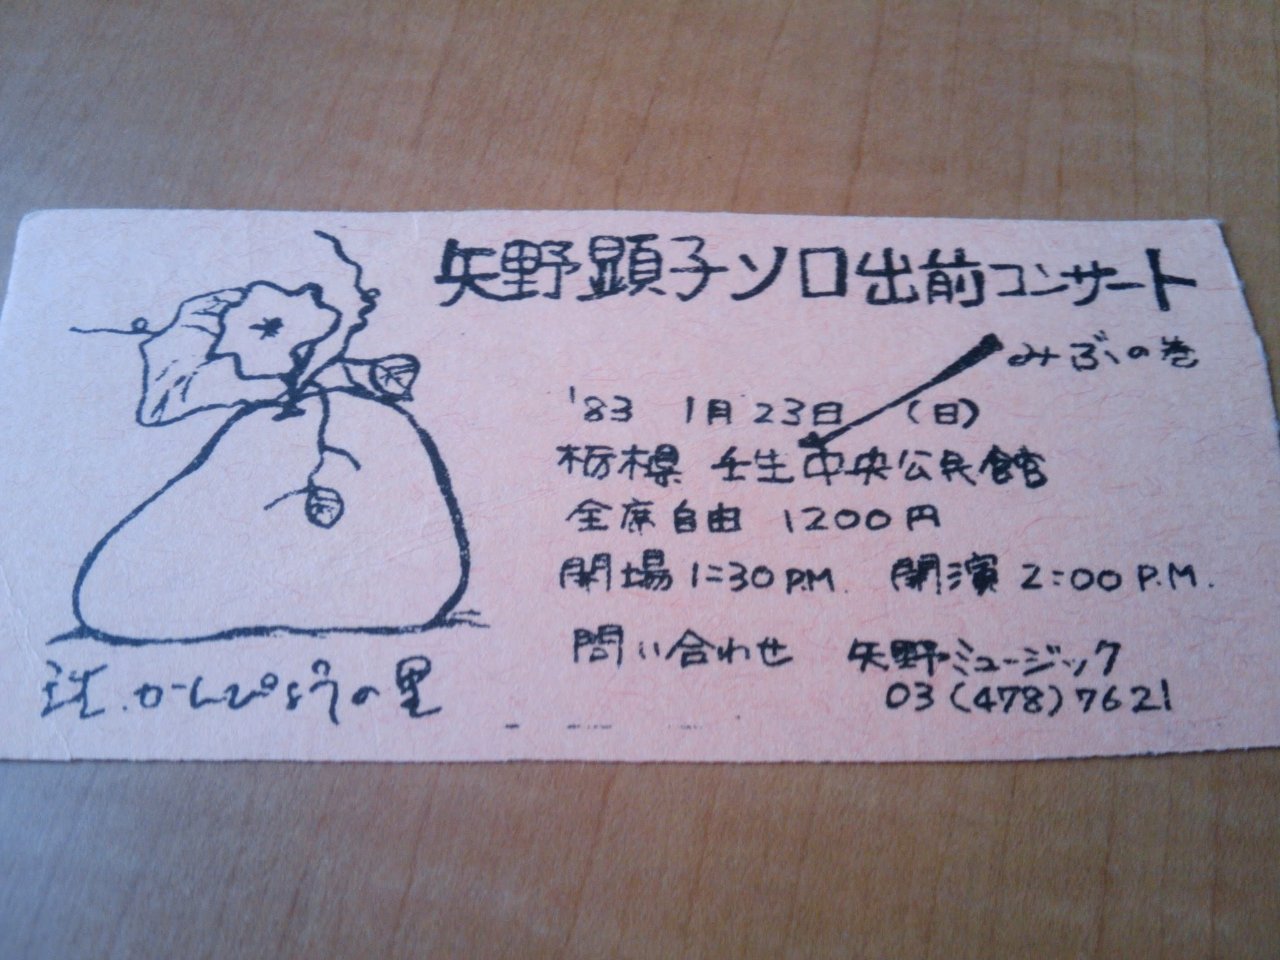 矢野顕子ソロ出前コンサート
みぶの巻
'83 1月23日 (日)
栃木県 壬生中央公民館
全席自由 1200円
開場1:30P.M. 開演2:00P.M.
問い合わせ 矢野ミュージック
03(478)7621
かんぴょうの里